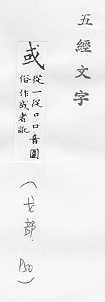 五經文字
或
從一從口口音圍
俗作或者訛
(戈部 P50)